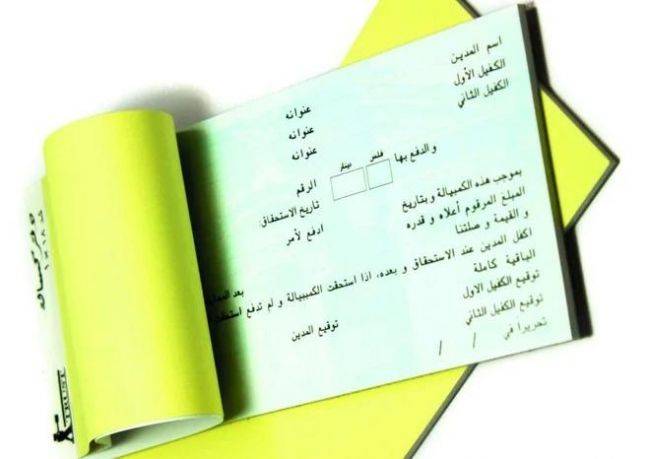 اسم المدين عنوانه
الكفيل الأول عنوانه
الكفيل الثاني عنوانه
الرقم دينار فلس والدفع بها
تاريخ الاستحقاق:
بموجب هذه الكمبيالة وبتاريخ ادفع لأمر
المبلغ المرقوم أعلاه و قدره
و القيمة و صلتنا
اكفل المدين عند الاستحقاق و بعده، اذا استحقت الكمبيالة و لم تدفع استحقت
الباقية كاملة
توقيع الكفيل الاول توقيع المدين
توقيع الكفيل الثاني
تحريرا في / /
TRUST